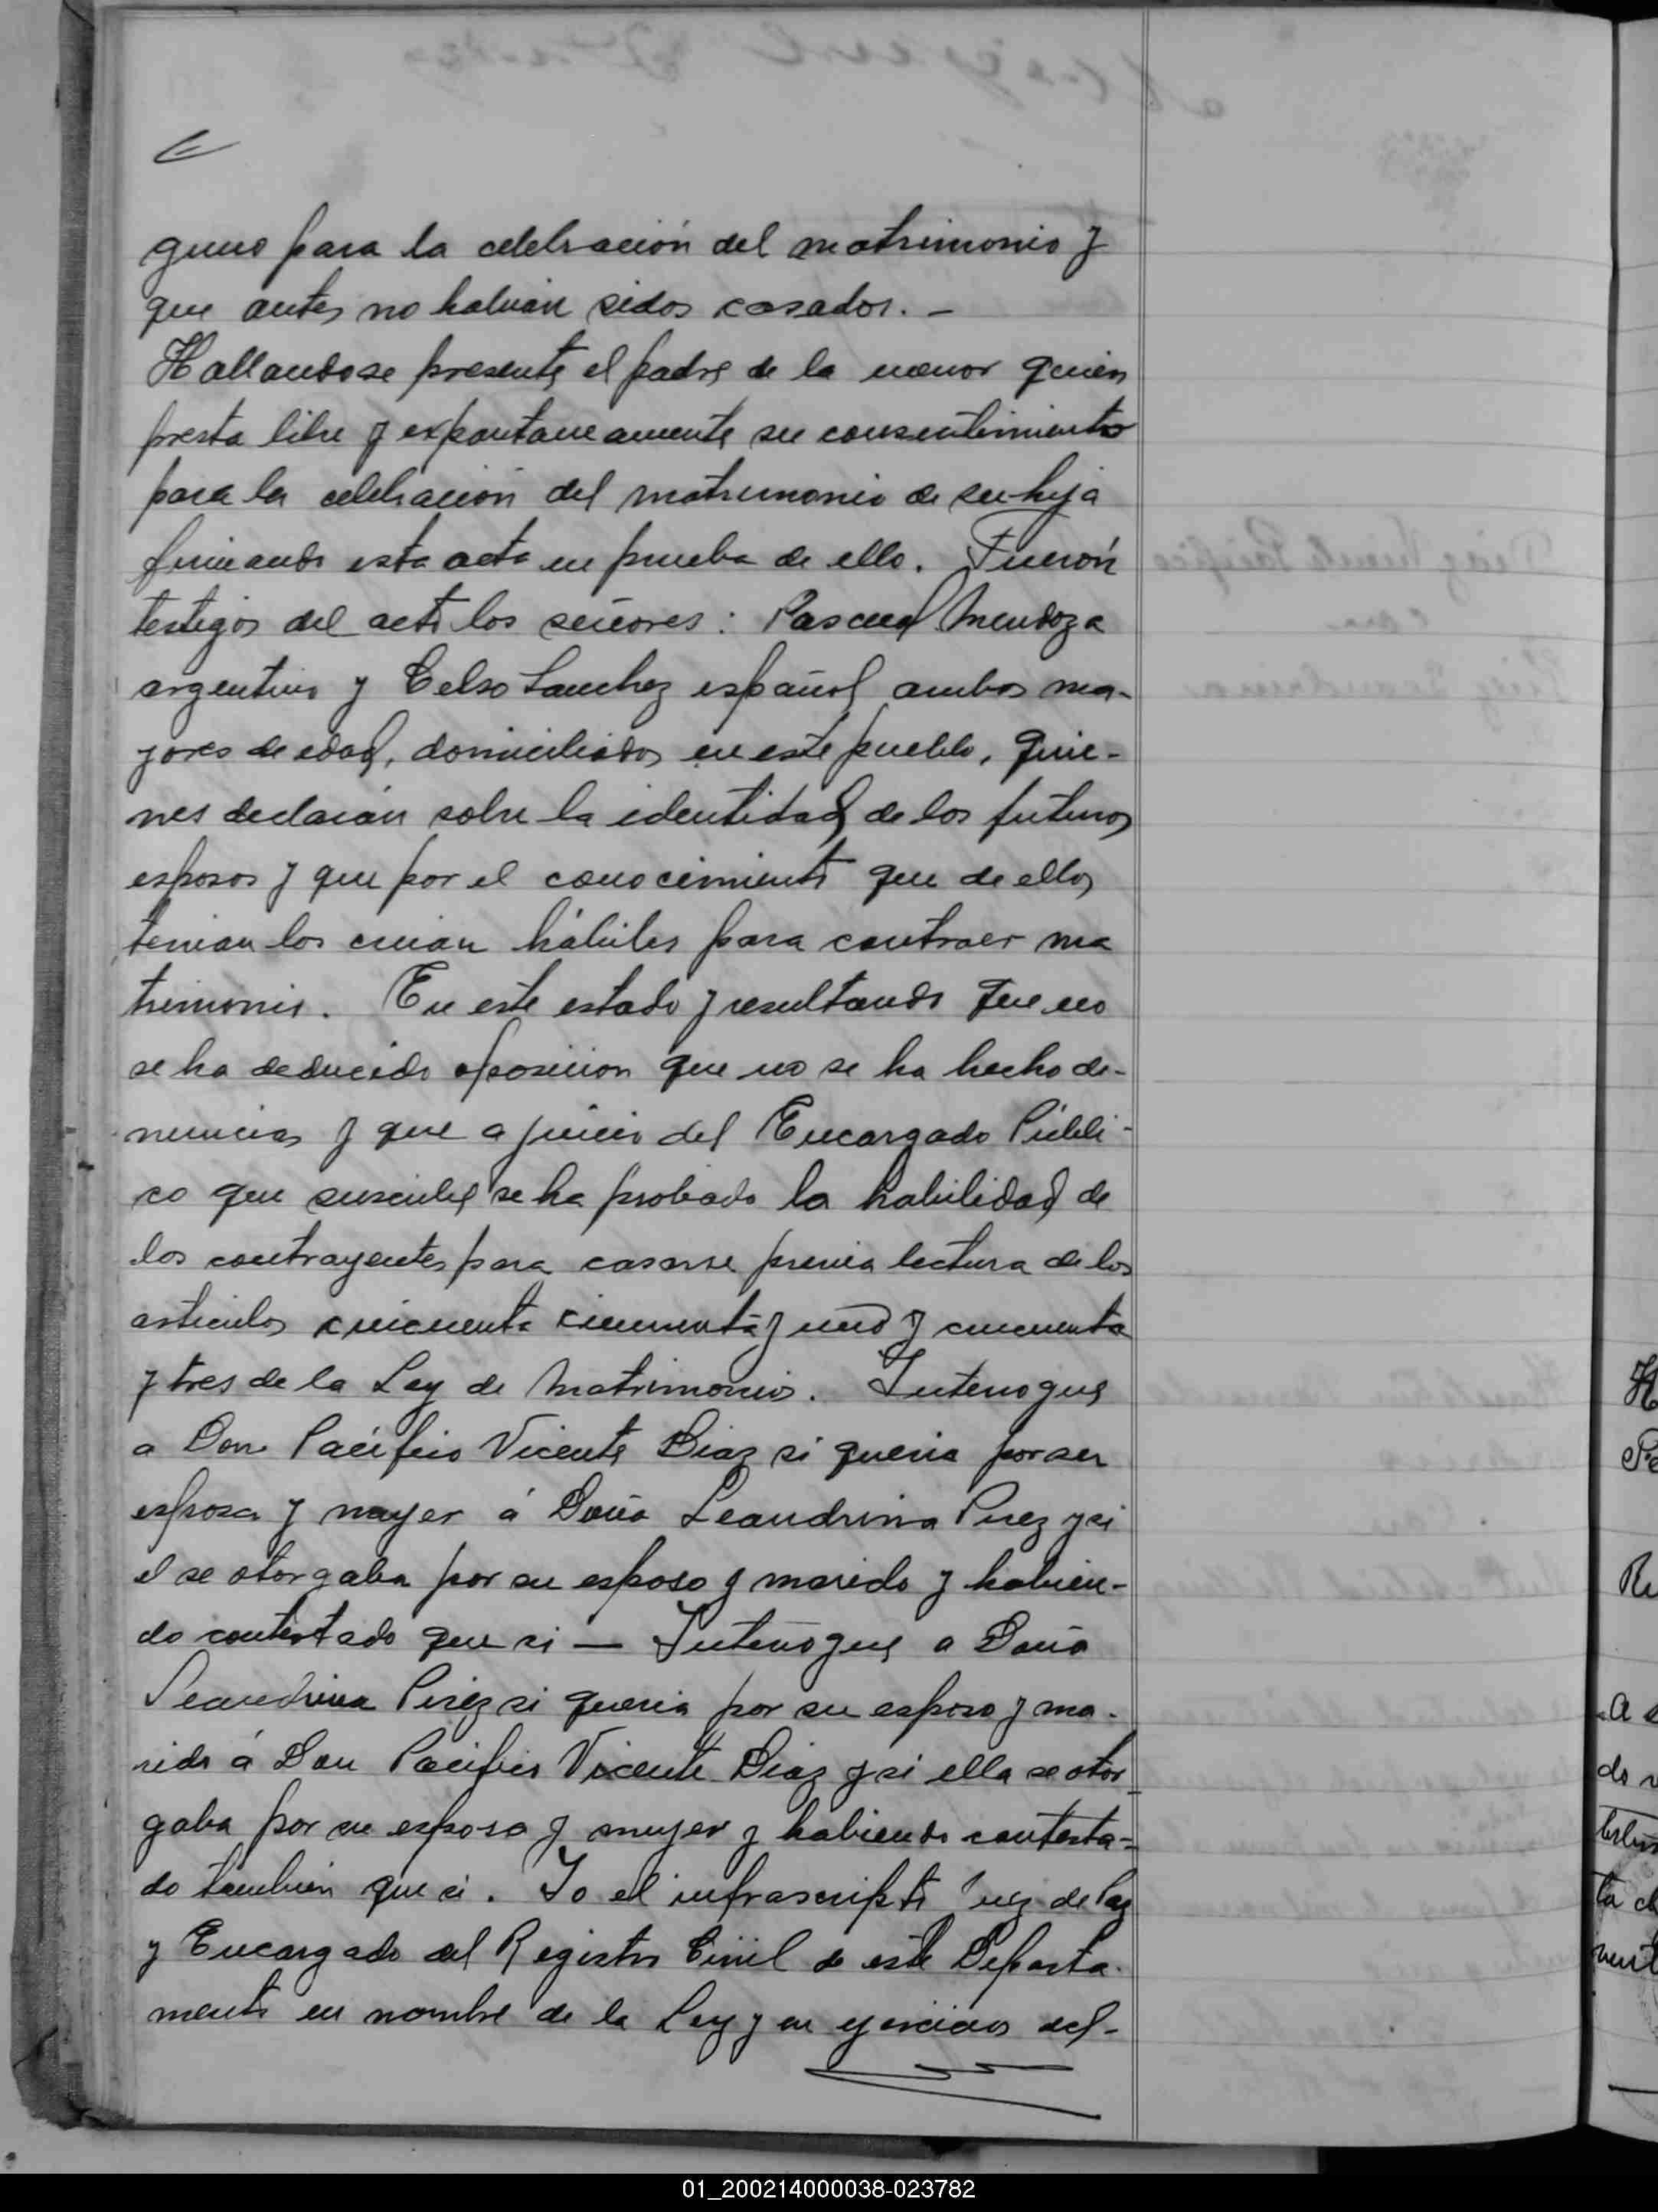 guno para la celebración del matrimonio y
que antes no habian sidos casados. —
Hallandose presente el padre de la menor quien
presta libre y expontaneamente su consentimiento
para la celebración del matrimonio de su hija
firmando esta acta en prueba de ello. Fuerón
testigos del acto los señores: Pascual Mendoza
argentino y Celso Sanchez español ambos ma-
yores de edad, domiciliados en este pueblo, quie-
nes declarán sobre la identidad de los futuros
esposos y que por el conocimiento que de ellos
tenian los creian hábiles para contraer ma
trimonio. En este estado y resultando que no
se ha deducido oposicion que no se ha hecho de-
nuncias y que a juicio del Encargado Públi-
co que suscribe se ha probado la habilidad de
los contrayentes para casarse previa lectura de los
articulos cincuenta cincuenta y uno y cincuenta
y tres de la Ley de Matrimonio. Interrogue
a Don Pacifico Vicente Diaz si queria por su
esposa y mujer á Doña Leandrina Perez y si
el se otorgaba por su esposo y marido y habien-
do contestado que si — Interrogue a Doña
Leandrina Perez si queria por su esposo y ma-
rido á Don Pacifico Vicente Diaz y si ella se otor
gaba por su esposa y mujer y habiendo contesta-
do tambien que si. Yo el infrascripto Juez de Paz
y Encargado del Registro Civil de este Departa-
mento en nombre de la Ley y en ejercicio del-
01_200214000038-023782